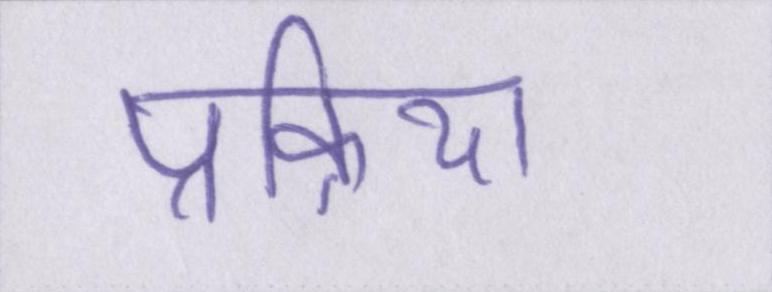 प्रक्रिया